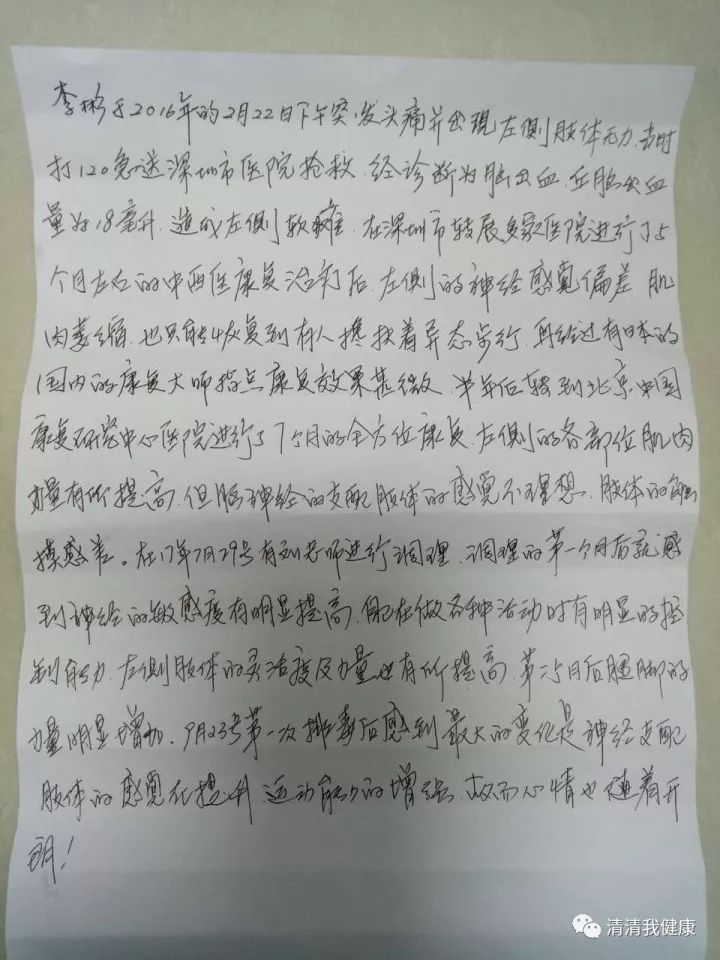 李彬于2016年的2月22日下午突发头痛并出现左侧肢体无力.当时
打120急送深圳市医院抢救.经诊断为脑出血.丘脑出血
量为18毫升.造成左侧软瘫.在深圳市转展多家医院进行了5
个月左右的中西医康复治疗后.左侧的神经感觉偏差 肌
肉萎缩.也只能恢复到有人搀扶着异态步行.再经过有日本的
国内的康复大师指点康复效果甚微.半年后转到北京中国
康复研究中心医院进行了7个月的全方位康复.左侧的各部位肌肉
力量有所提高.但脑神经的支配肢体的感觉不理想.肢体的触
摸感差。在17年7月29号有刘老师进行调理.调理的第一个月后就感
到神经的敏感度有明显提高.自己在做各种活动时有明显的控
制能力.左侧肢体的灵活度及力量也有所提高.第二个月后腿脚的
力量明显增加.9月23号第一次排毒后感到最大的变化是神经支配
肢体的感觉在提升.运动能力的增强.故而心情也随着开
朗!
清清我健康